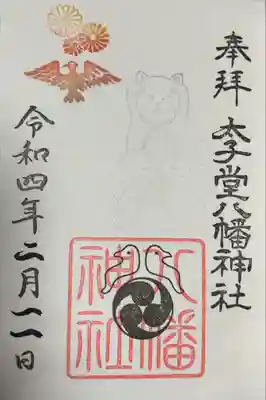 奉拝 太子堂八幡神社
八幡
神社
令和四年二月二日